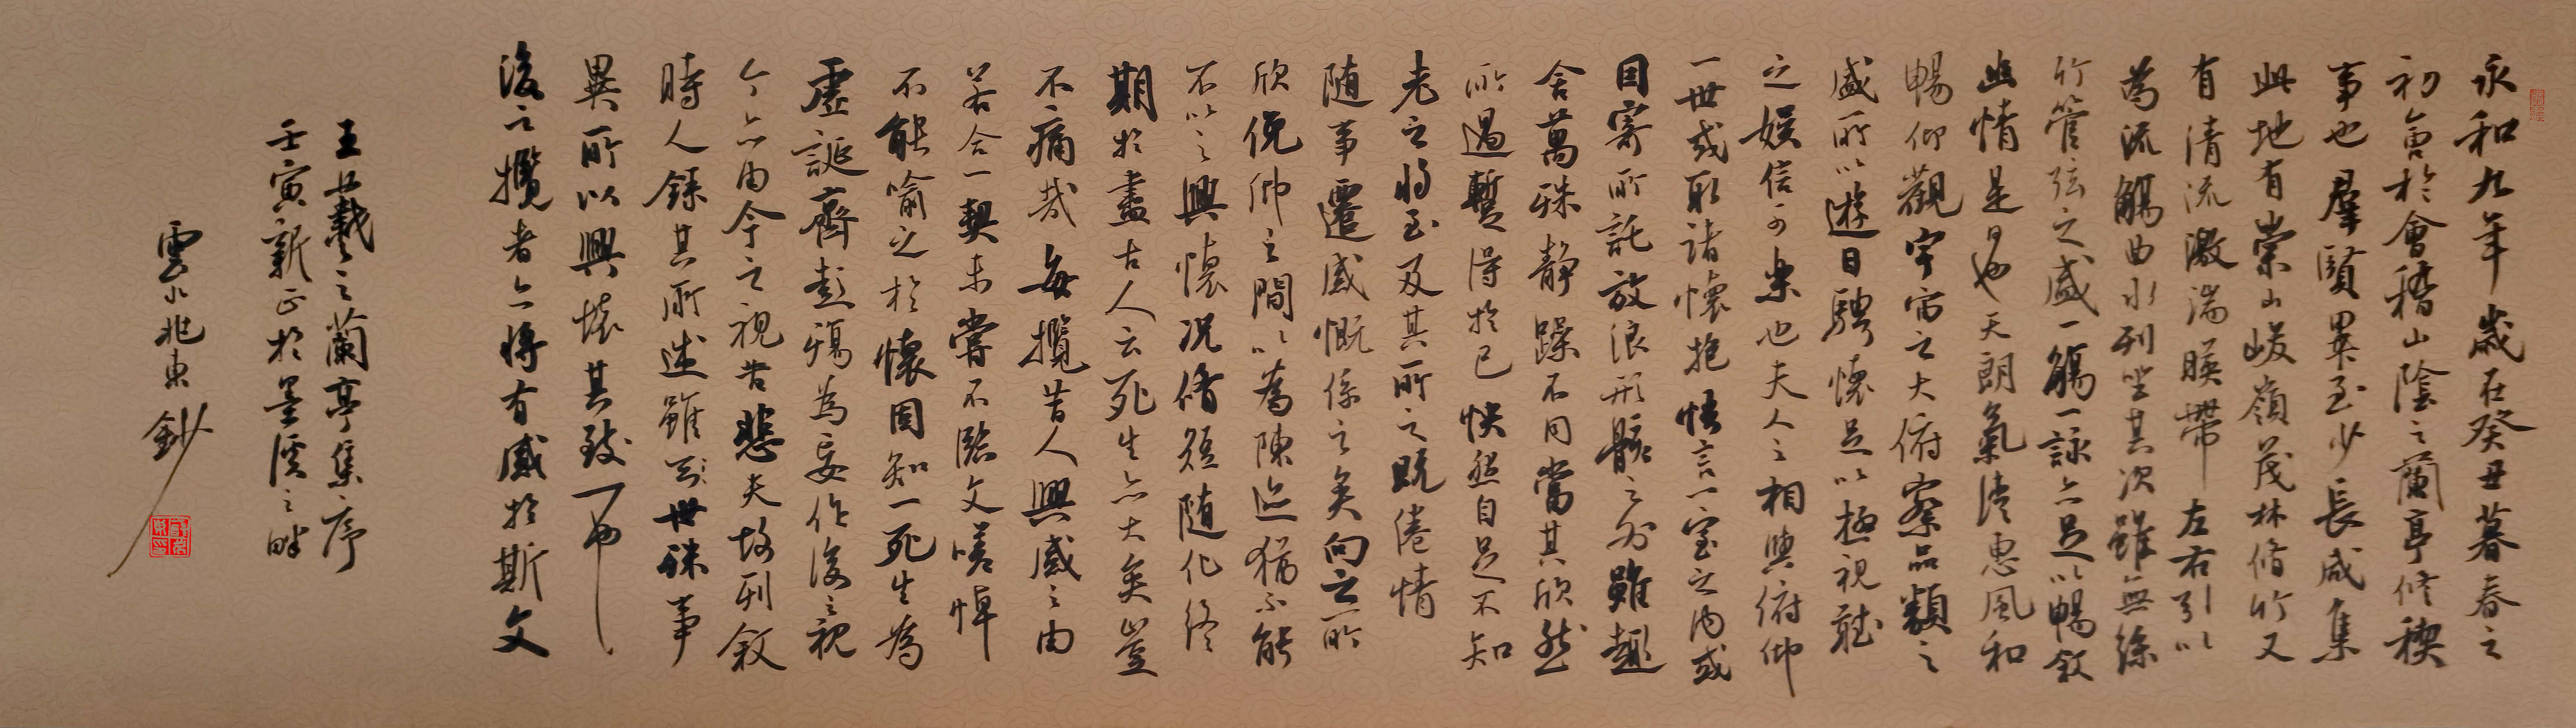 永和九年歲在癸丑暮春之
初會於會稽山陰之蘭亭修稧
事也羣賢畢至少長咸集
此地有崇山峻嶺茂林脩竹又
有清流激湍暎帶左右引以
為流觴曲水列坐其次雖無絲
竹管弦之盛一觴一詠亦足以暢敘
幽情是日也天朗氣清惠風和
暢仰觀宇宙之大俯察品類之
盛所以遊目騁懷足以極視聽
之娛信可樂也夫人之相與俯仰
一世或取諸懷抱悟言一室之內或
因寄所託放浪形骸之外雖趣
舍萬殊靜躁不同當其欣然
所遇暫得於己怏然自足不知
老之將至及其所之既倦情
随事遷感慨係之矣向之所
欣俛仰之間以為陳迹猶不能
不以之興懷況脩短随化終
期於盡古人云死生亦大矣豈
不痛哉每攬昔人興感之由
若合一契未嘗不臨文嗟悼
不能喻之於懷固知一死生為
虛誕齊彭殤為妄作後之視
今亦由今之視昔悲夫故列敘
時人錄其所述雖云世殊事
異所以興懷其致一也
後之攬者亦將有感於斯文
王羲之蘭亭集序
壬寅新正於墨溪之畔
雲兆東鈔